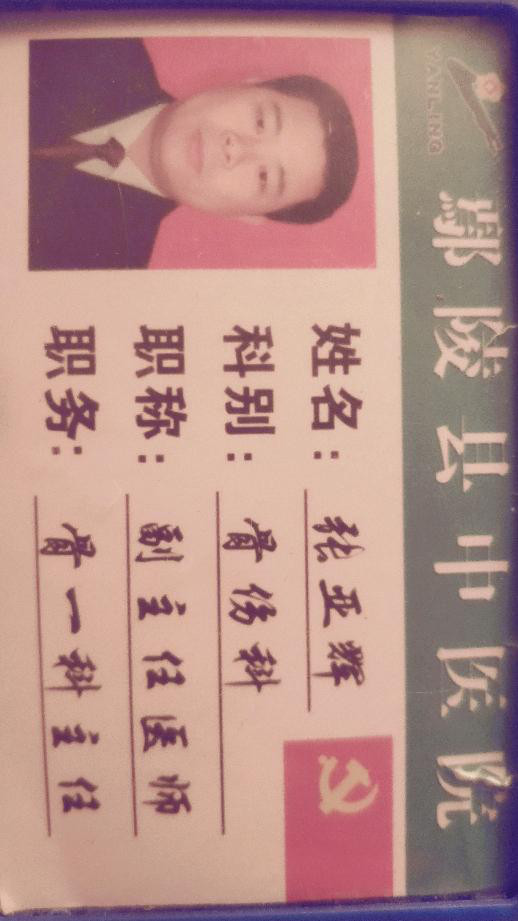 YANLING
鄢陵县中医院
姓名：张亚辉
科别：骨伤科
职称：副主任医师
职务：骨一科主任